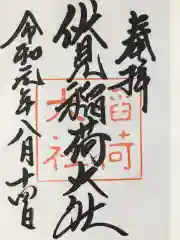 奉拝
伏見稲荷大社
稲荷
大社
令和元年八月十四日